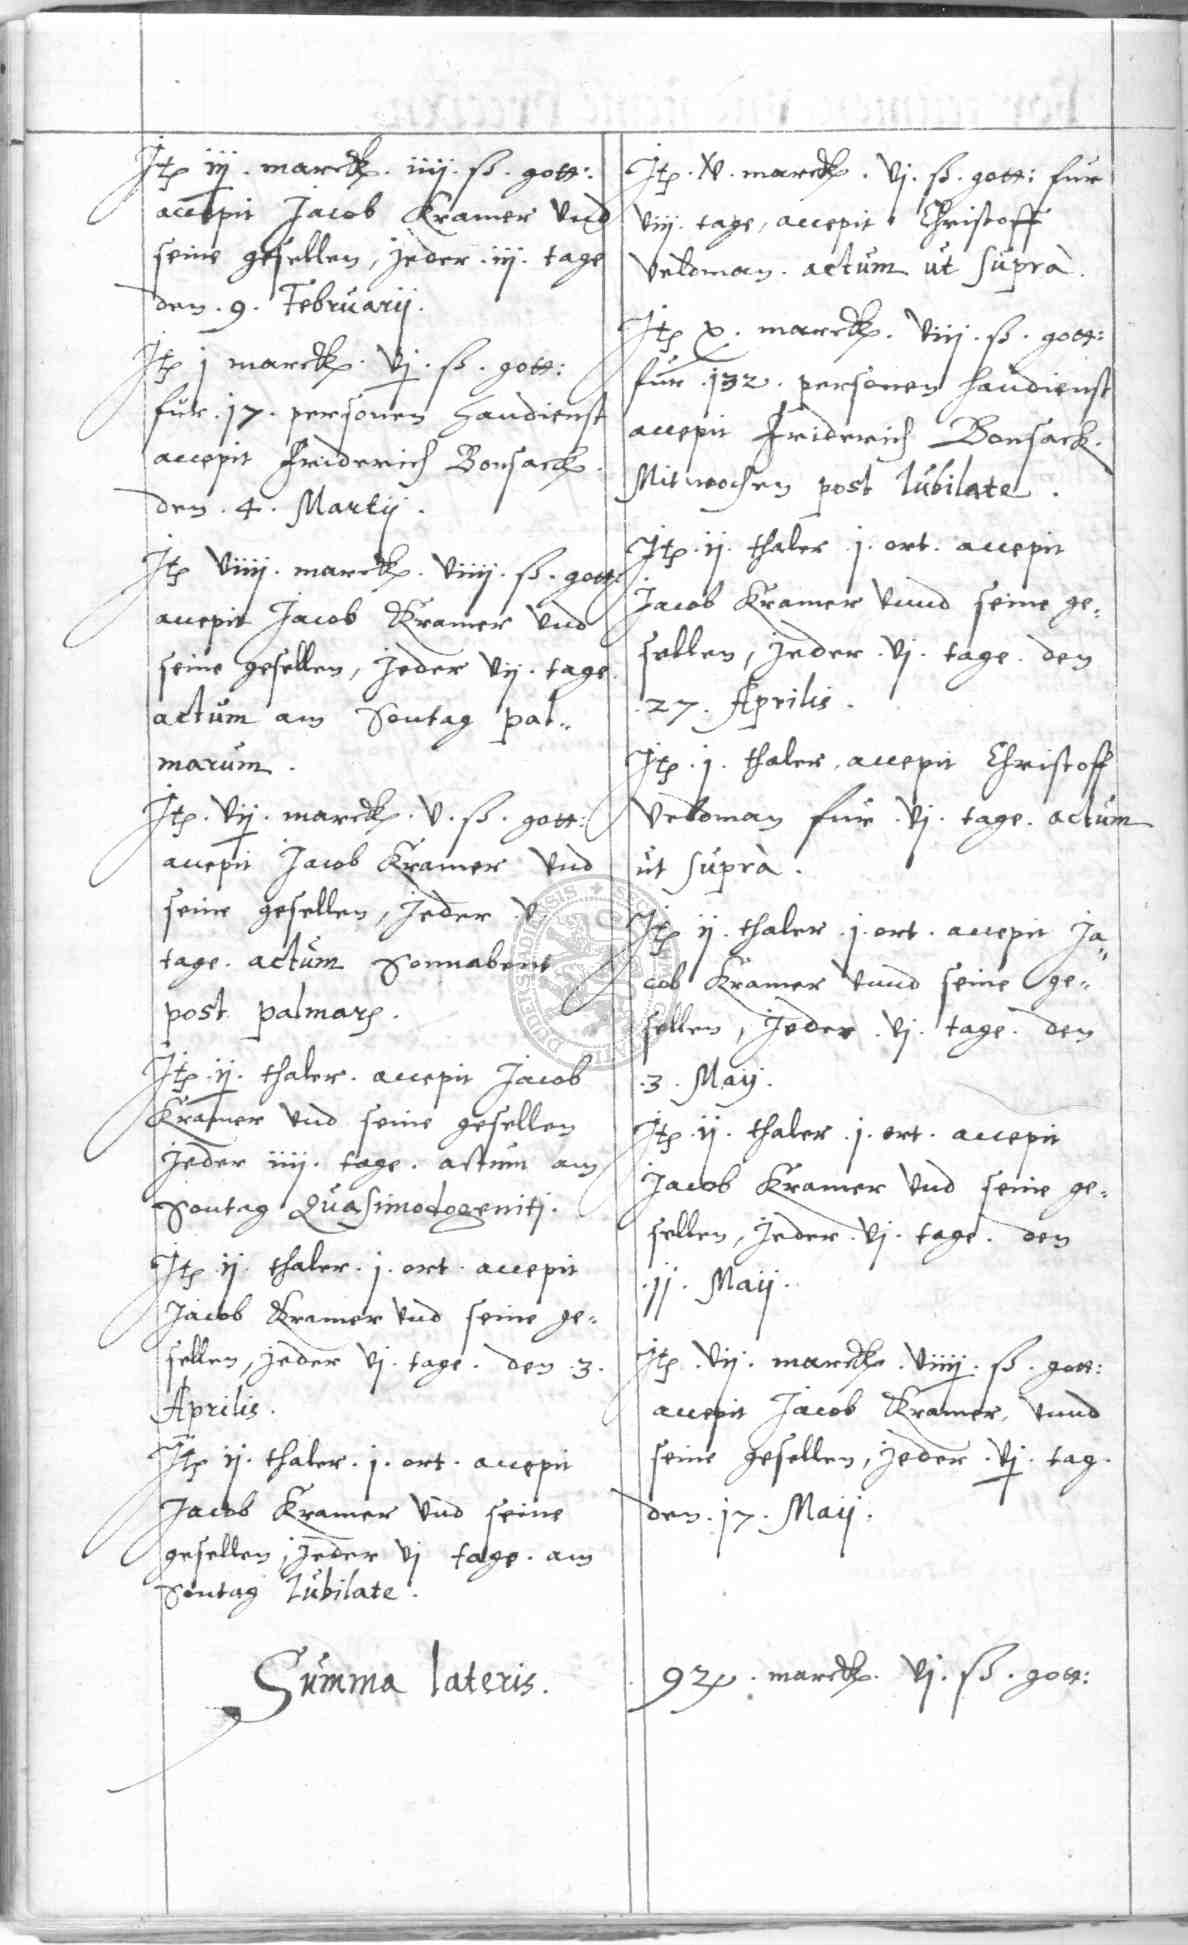 Jtꝫ iij. marck. iiij. ß. gott:
accepit Jacob Kramer vnd
seine gesellen, jeder .iij. tage
den .9. Februarij.
Jtꝫ j marck. vj. ß. gott:
fur .17. personen handienst
accepit Friderich Bonsack.
den .4. Martij.
Jtꝫ viiij. marck. viiij. ß. gott:
accepit Jacob Kramer vnd
seine gesellen, jeder vij. tage.
actum am Sontag pal=
marum.
Jtꝫ. vij. marck. v. ß. gott:
accepit Jacob Kramer vnd
seine gesellen, jeder .v.
tage. actum Sonnabent
post palmarꝫ.
Jtꝫ .ij. thaler. accepit Jacob
Kramer vnd seine gesellen
jeder iiij. tage. actum am
Sontag Quasimodogeniti.
Jtꝫ ij. thaler. j. ort. accepit
Jacob Kramer vnd seine ge=
sellen, jeder vj. tage. den .3.
Aprilis.
Jtꝫ ij. thaler. j. ort. accepit
Jacob Kramer vnd seine
gesellen, jeder vj tage. am
Sontag Iubilate.
Summa lateris.
Jtꝫ. xv. marck. vj. ß. gott: fur
viij. tage, accepit Christoff
Veltman. actum ut suprà.
Jtꝫ x. marck. viiij. ß. gott:
fur .132. personen handienst
accepit Friderich Bonsack.
Mitwochen post Iubilate.
Jtꝫ .ij. thaler .j. ort. accepit
Jacob Kramer vnnd seine ge=
sellen, jeder .vj. tage. den
.27. Aprilis.
Jtꝫ .j. thaler, accepit Christoff
Veltman fur .vj. tage. actum
ut suprà.
Jtꝫ ij. thaler .j. ort. accepit Ja=
cob Kramer vnnd seine ge=
sellen, jeder .vj. tage. den
.3. Maij.
Jtꝫ .ij. thaler .j. ort. accepit
Jacob Kramer vnd seine ge=
sellen, jeder .vj. tage. den
.11. Maij.
Jtꝫ .vij. marck. viiij. ß. gott:
accepit Jacob Kramer, vnnd
seine gesellen, jeder .vj. tag.
den .17. Maij.
marck. vj. ß. gott: